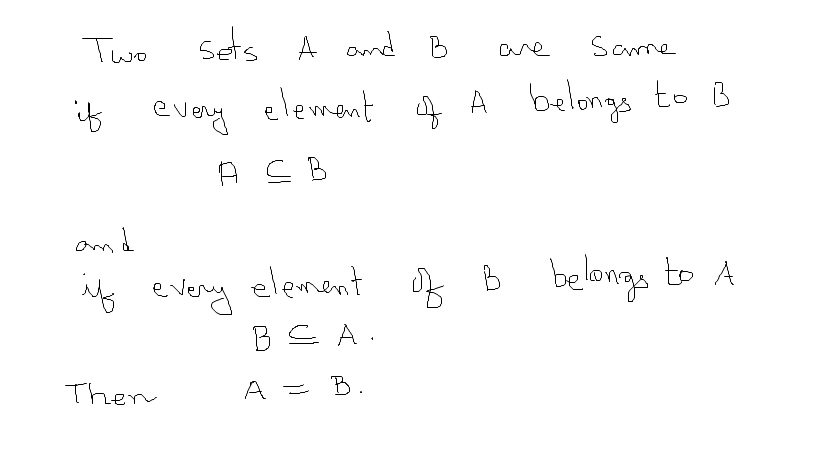 Two sets A and B are same
if every element of A belongs to B
A ⊆ B
and
if every element of B belongs to A
B ⊆ A.
Then A = B.